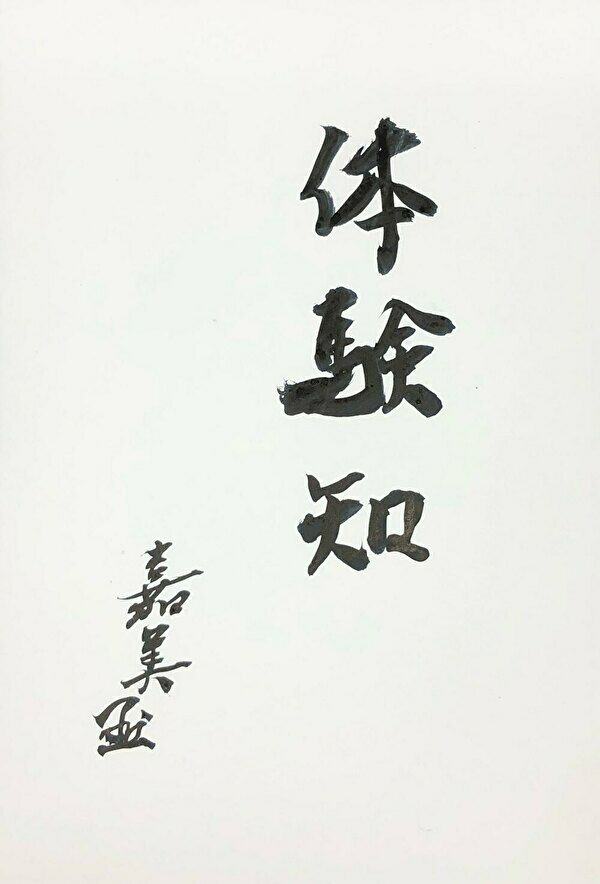 体験知
嘉美